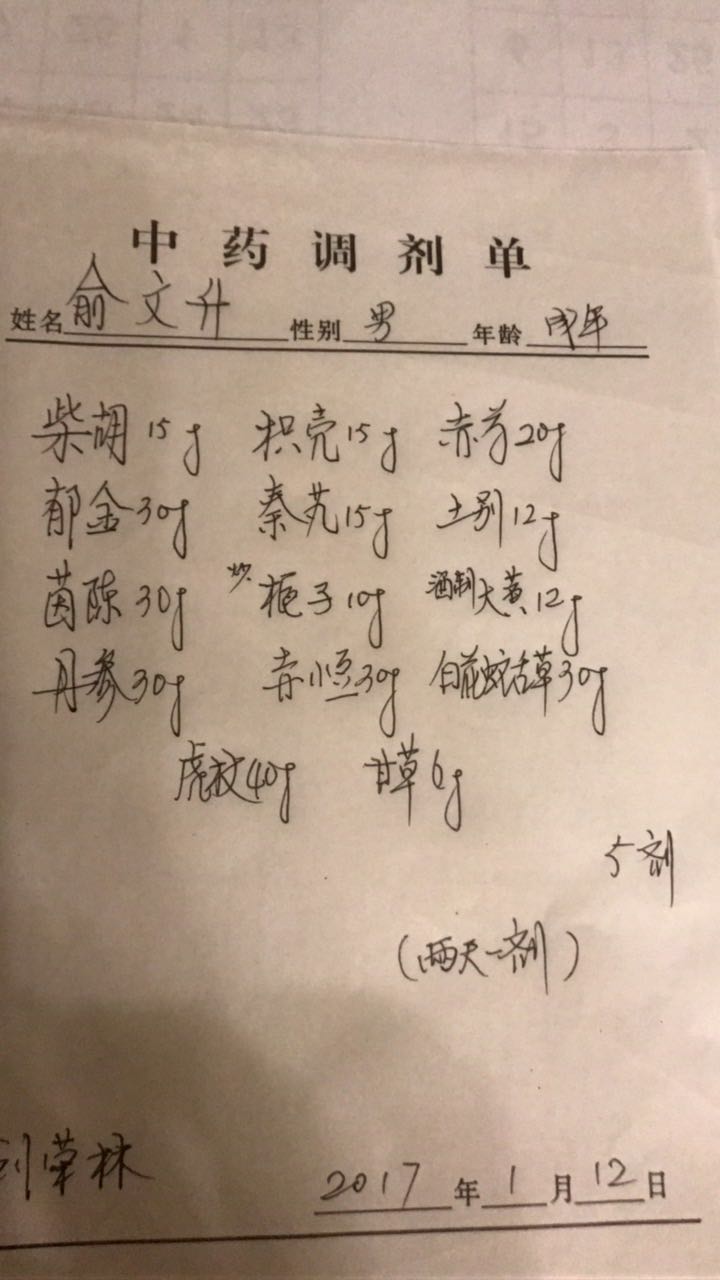 中药调剂单
姓名 俞文升 性别 男 年龄 成年
柴胡15g 枳壳15g 赤芍20g
郁金30g 秦艽15g 土别12g
茵陈30g 炒栀子10g 酒制大黄12g
丹参30g 赤小豆30g 白花蛇舌草30g
虎杖40g 甘草6g
5剂
(两天一剂)
刘荣林 2017年1月12日